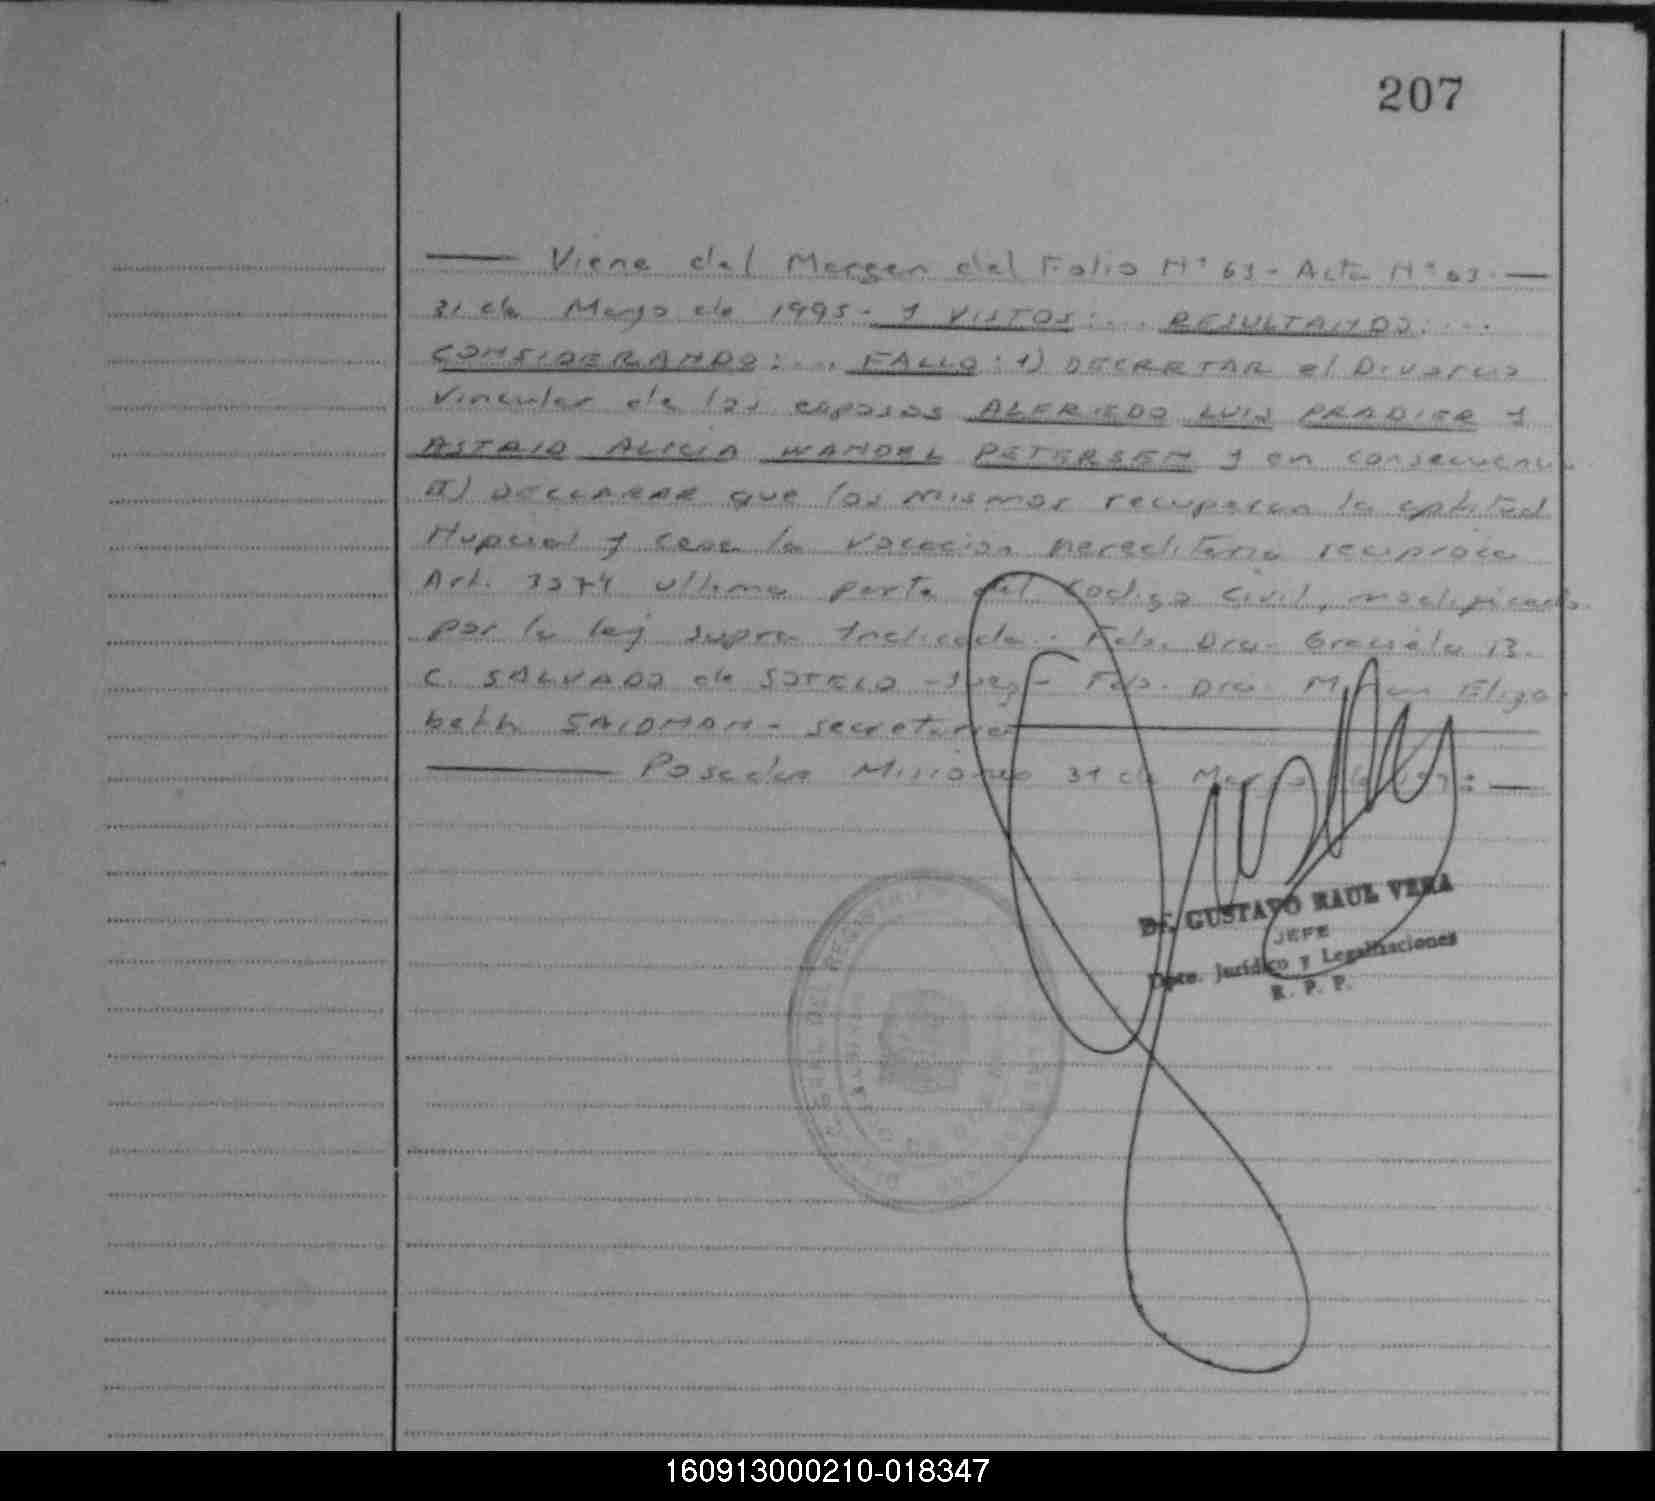 207
Viene del Margen del Folio Nº 63 - Acta Nº 63.
31 de Marzo de 1995 - Y VISTOS: ... RESULTANDO: ...
CONSIDERANDO: ... FALLO: 1) DECRETAR el Divorcio
Vincular de los esposos ALFREDO LUIS PRADIER y
ASTRID ALICIA WANDEL PETERSEN y en consecuencia
II) DECLARAR que los mismos recuperan la aptitud
Nupcial y cesa la vocacion hereditaria reciproca
Art. 3574 ultima parte del Codigo Civil, modificado
por la ley supra Indicada. Fdo. Dra. Graciela B.
C. SALVADO de SOTELO - Juez - Fdo. Dra. Miriam Eliza
beth SALOMON - Secretaria
Posadas Misiones 31 de Marzo de
Dr. GUSTAVO RAUL VERA
JEFE
Dpto. Jurídico y Legalizaciones
R. P. P.
160913000210-018347